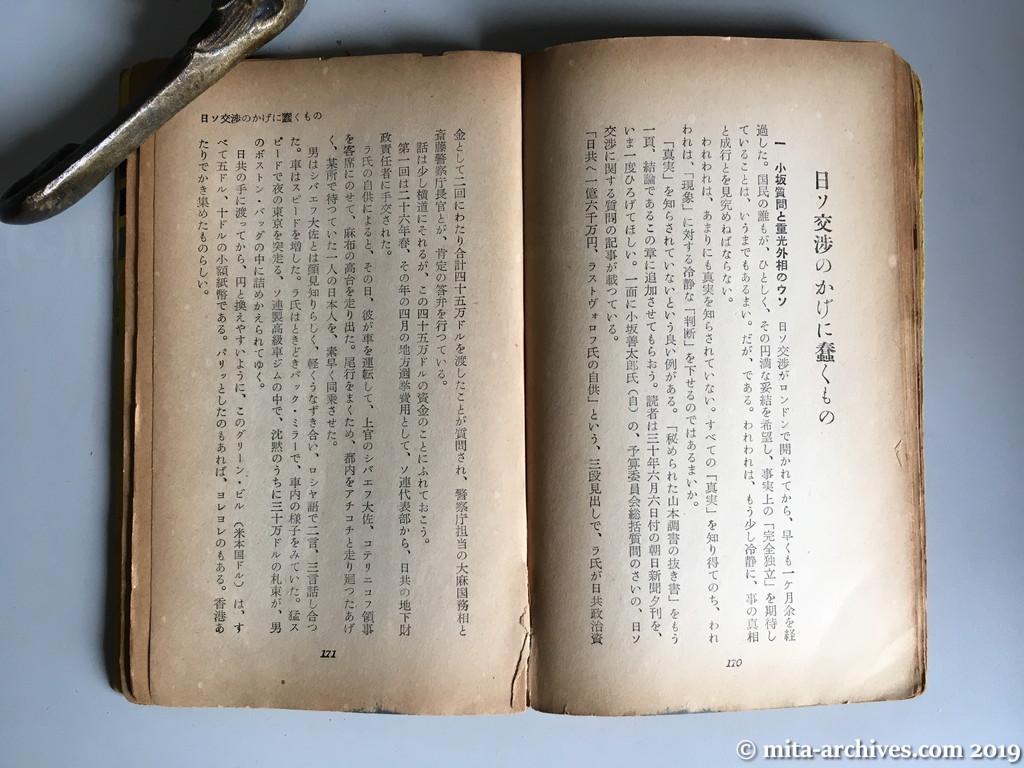 日ソ交渉のかげに蠢くもの
一　小坂質問と重光外相のウソ　日ソ交渉がロンドンで開かれてから、早くも一ヶ月余を経
過した。国民の誰もが、ひとしく、その円満な妥結を希望し、事実上の「完全独立」を期待し
ていることは、いうまでもあるまい。だが、である。われわれは、もう少し冷静に、事の真相
と成行とを見究めねばならない。
われわれは、あまりにも真実を知らされていない。すべての「真実」を知り得てのち、われ
われは、「現象」に対する冷静な「判断」を下せるのではあるまいか。
「真実」を知らされていないという良い例がある。「秘められた山本調書の抜き書」をもう
一頁、結論であるこの章に追加させてもらおう。読者は三十年六月六日付の朝日新聞夕刊を、
いま一度ひろげてほしい。一面に小坂善太郎氏（自）の、予算委員会総括質問のさいの、日ソ
交渉に関する質問の記事が載つている。
「日共へ一億六千万円、ラストヴォロフ氏の自供」という、三段見出しで、ラ氏が日共政治資
170
日ソ交渉のかげに蠢くもの
金として二回にわたり合計四十五万ドルを渡したことが質問され、警察庁担当の大麻国務相と
斎藤警察庁長官とが、肯定の答弁を行つている。
話は少し横道にそれるが、この四十五万ドルの資金のことにふれておこう。
第一回は二十六年春、その年の四月の地方選挙費用として、ソ連代表部から、日共の地下財
政責任者に手交された。
ラ氏の自供によると、その日、彼が車を運転して、上官のシバエフ大佐、コテリニコフ領事
を客席にのせて、麻布の高台を走り出た。尾行をまくため、都内をアチコチと走り廻つたあげ
く、某所で待つていた一人の日本人を、素早く同乗させた。
男はシバエフ大佐とは顔見知りらしく、軽くうなずき合い、ロシヤ語で二言、三言話し合つ
た。車はスピードを増した。ラ氏はときどきバック・ミラーで、車内の様子をみていた。猛ス
ピードで夜の東京を突走る、ソ連製高級車ジムの中で、沈黙のうちに三十万ドルの札束が、男
のボストン・バッグの中に詰めかえられてゆく。
日共の手に渡つてから、円と換えやすいように、このグリーン・ビル（米本国ドル）は、す
べて五ドル、十ドルの小額紙幣である。パリッとしたのもあれば、ヨレヨレのもある。香港あ
たりでかき集めたものらしい。
171
© mita-archives.com 2019